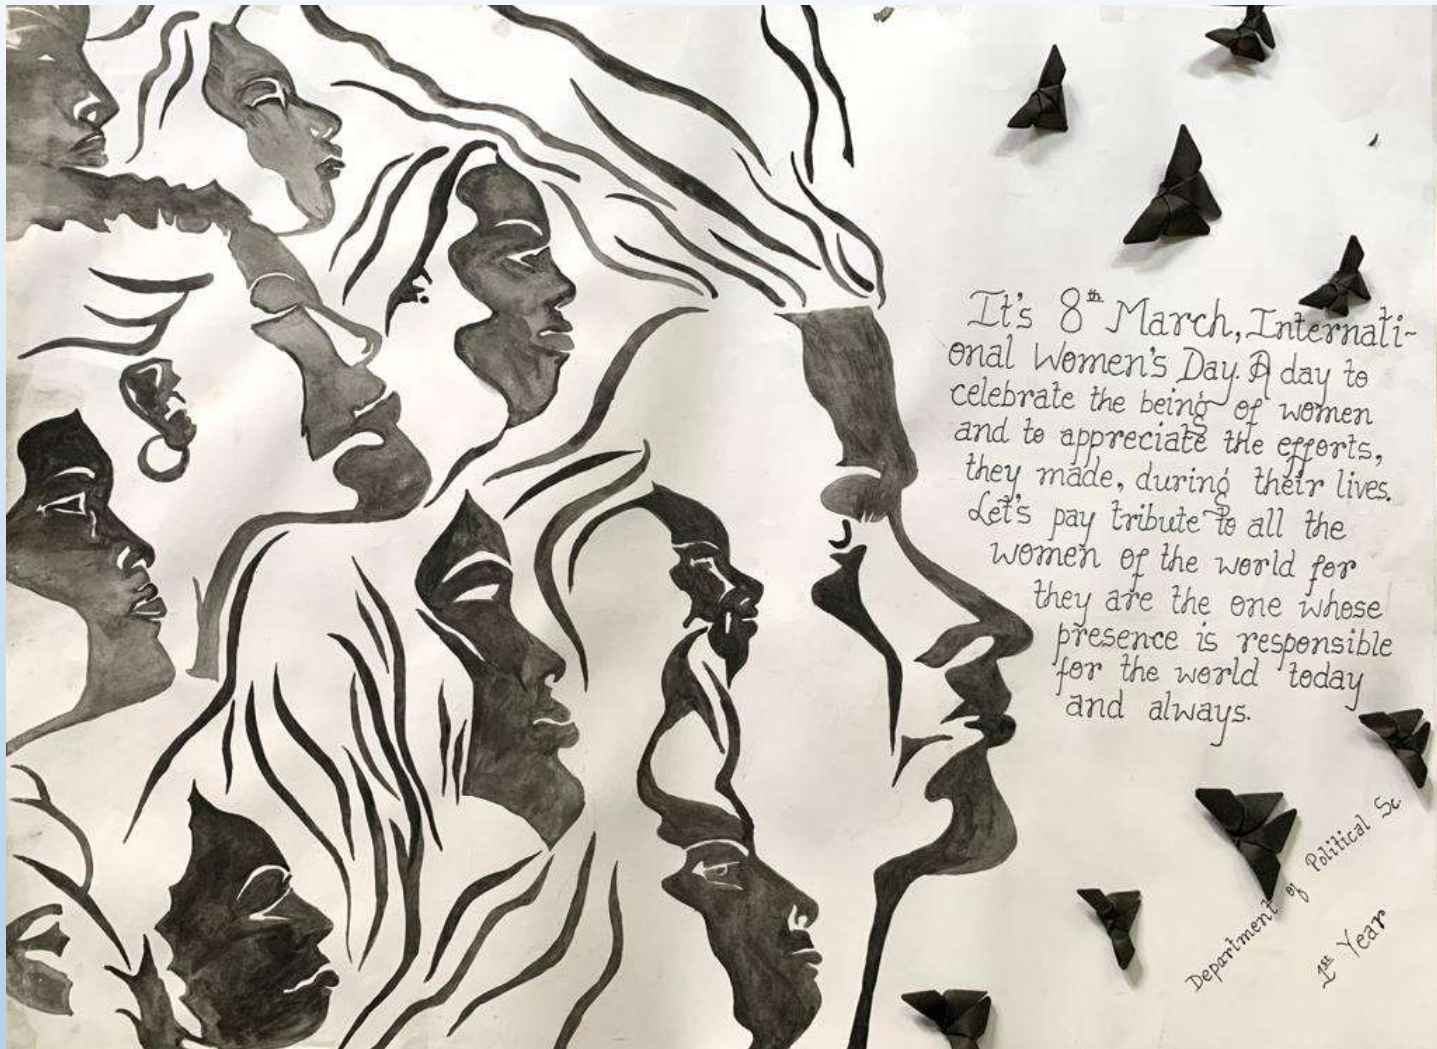 It's 8th March, Internati-
onal Women's Day. A day to
celebrate the being of women
and to appreciate the efforts,
they made, during their lives.
Let's pay tribute to all the
women of the world for
they are the one whose
presence is responsible
for the world today
and always.
Department of Political Sc
1st Year